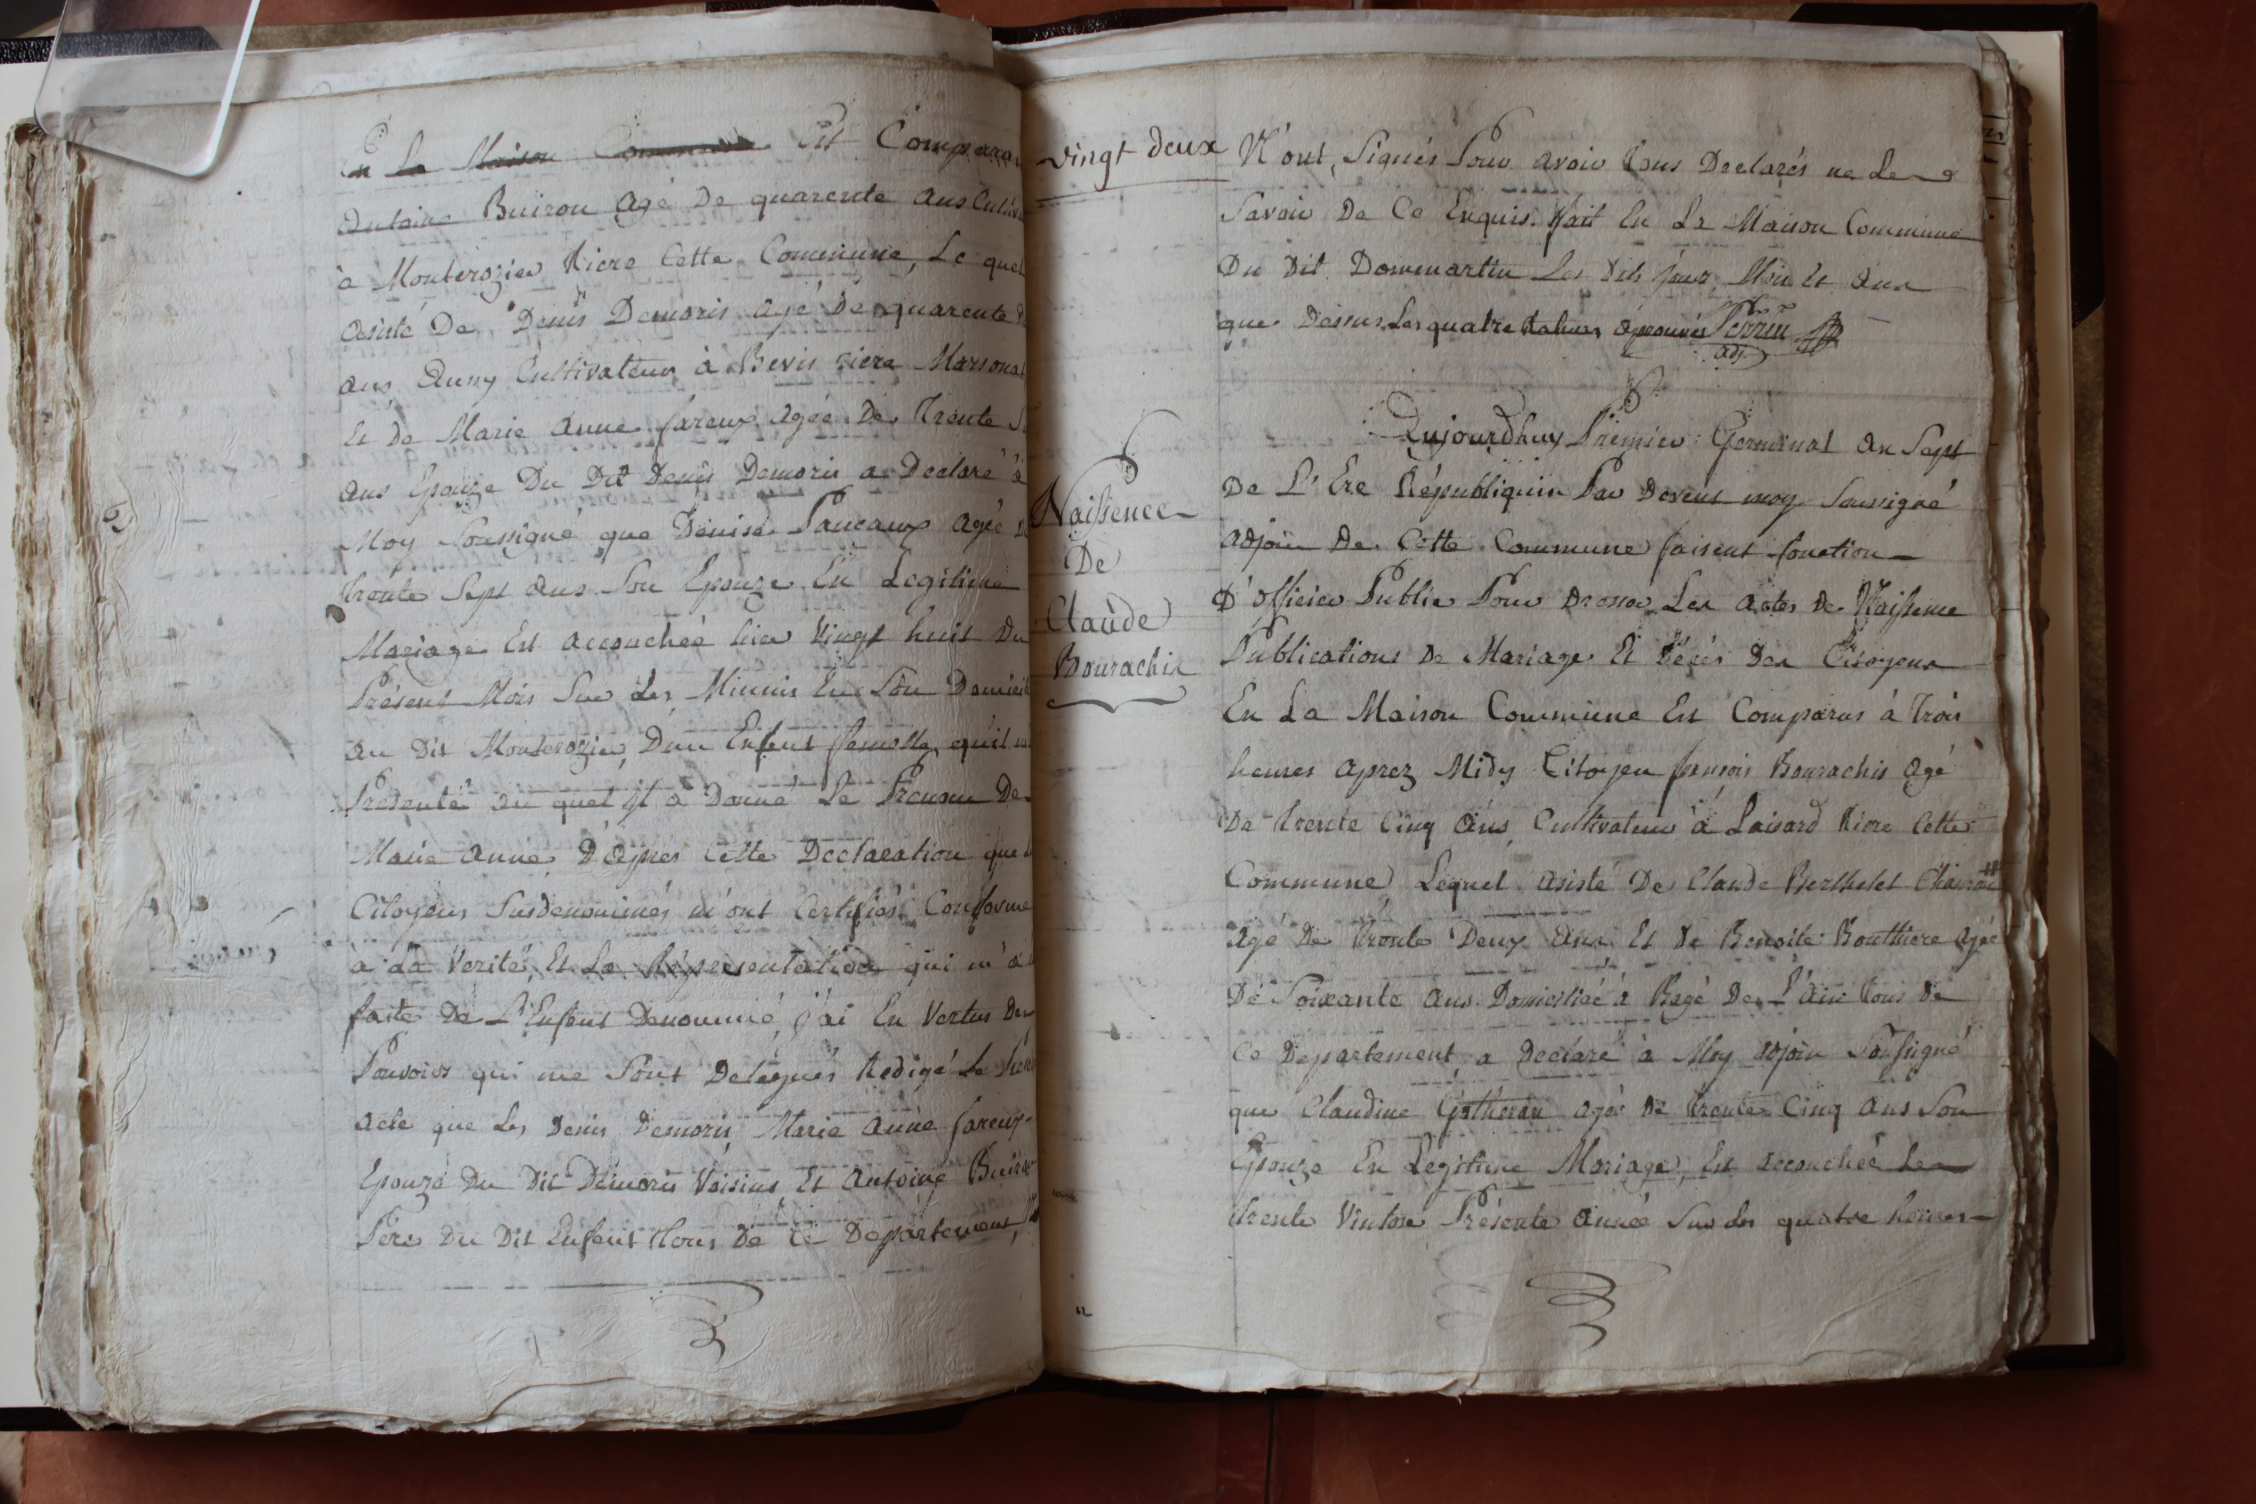 En La Maison Commune Est Compara
Antoine Buiron Agé De quarente Ans Cultiv
à Monterozier Riere Cette Commune, Le quel
Asisté De Denis Demoris agé De quarente
ans Auny Cultivateur à Bevis riere Marsonas
Et De Marie Anne fareux Agée De Trente S
ans Epouze Du Dit Denis Demoris a Declaré à
Moy Soussigné que Denise Pauceaux Agée D
trente Sept ans Son Epouze En Legitime
Mariage Est accouchéé hier Vingt huit Du
Présent Mois Sur Les Minuis En Son Domicil
au Dit Monterozier, D'un Enfent femelle, qu'il m
Présenté au quel Il à Donné Le Prenom De
Marie Anne, D'Apres Cette Declaration que
Citoyens Susdenommés m'ont Certifiés Conforme
à La Verité, Et La Répresentation qui m'a
faite De L'Enfent Denommé, j'ai En Vertus Des
Pouvoirs qui me Sont Delegués Redigé Le Prés
acte que Les Denis Demoris, Marie Anne fareux
Epouze Du Dit Demoris Voisins, Et Antoine Buiron
Pere Du Dit Enfent tous De Ce Departement,
vingt deux
N'ont Signés Pour avoir tous Declarés ne Le
Savoir De Ce Enquis. Fait En La Maison Commune
Du Dit Dommartin Les Dits Jours Mois Et Ans
que Dessus Les quatre Ratures Aprouvés Perrin
adj
Naissence
De
Claude
Bourachis
Aujourdhuy Premier Germinal An Sept
De L'Ere Républiquin Par Devent moy Soussigné
adjoin De Cette Commune faisent fonction
D'Officier Public Pour Dresser Les Actes De Naissence
Publications De Mariage Et Décés Des Citoyens
En La Maison Commune Est Comparus à Trois
heures Aprez Midy Citoyen fransois Bourachis Agé
De trente Cinq Ans, Cultivateur à Loisard Riere Cette
Commune, Lequel Asisté De Claude Berthelet
Agé De trente Deux Ans Et De Benoite Bouthiere Agée
De Soixante Ans Domiciliée à Bagé De L'Ain tous De
Ce Departement, a Declaré à Moy adjoin Soussigné
que Claudine Gotheran agée De trente Cinq Ans Son
Epouze En Légitime Mariage, Est accouchéé Le
trente Vintose Présente Année Sur Les quatre heures